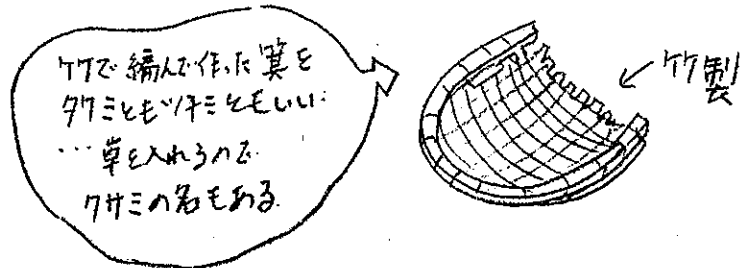 竹で編んで作った箕を
タケミともツチミともいい…
…草を入れるので
クサミの名もある
竹製